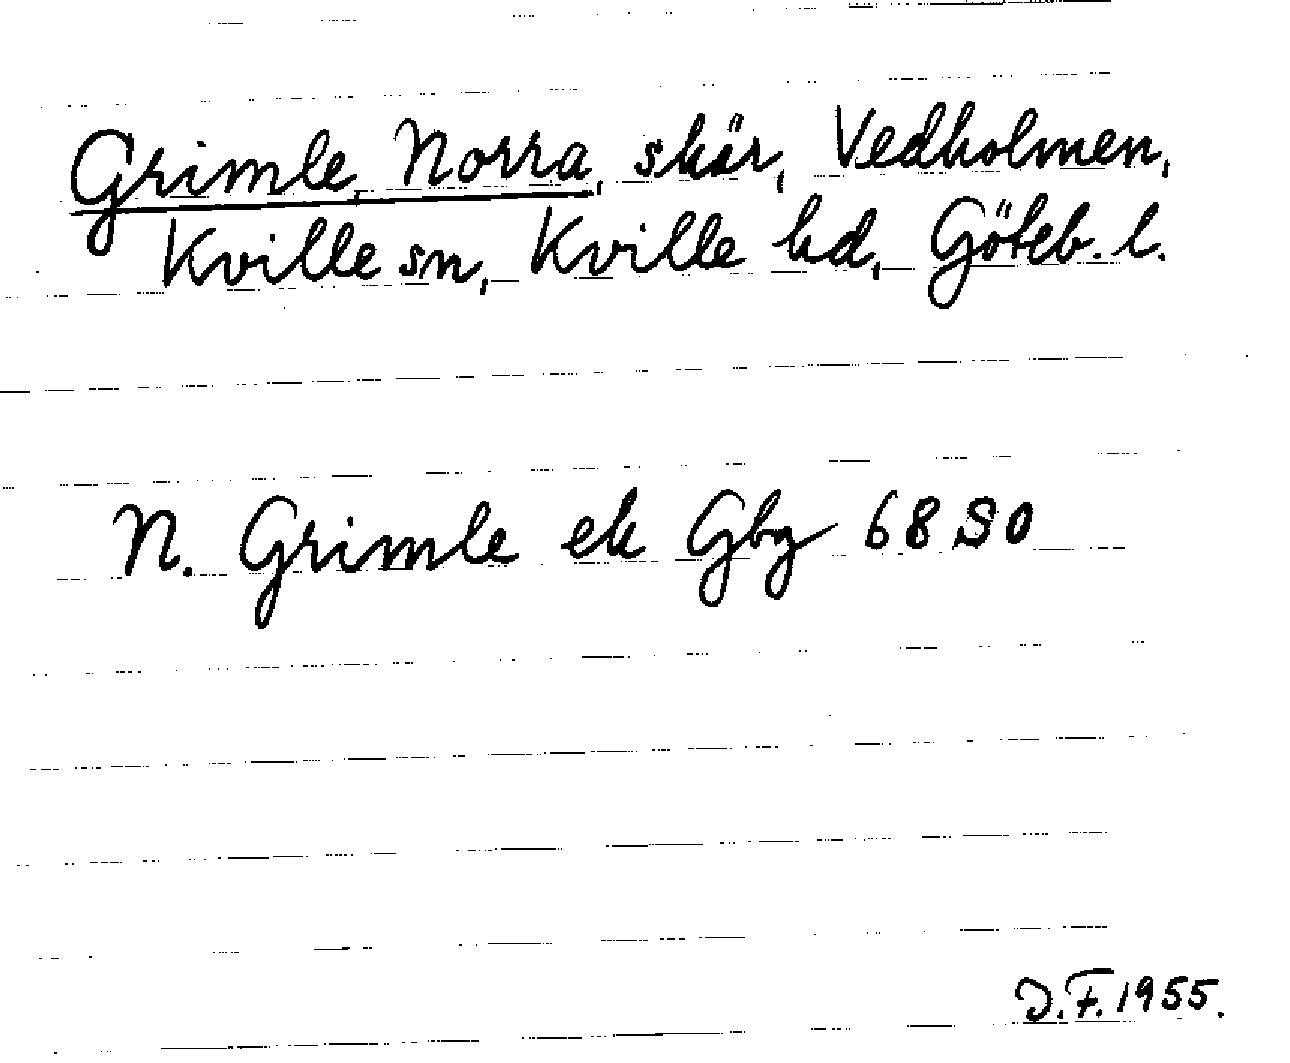 Grimle, Norra, skär, Vedholmen,
Kville sn, Kville hd, Göteb. l.
N. Grimle ek Gbg 68 SO
D.F. 1955.